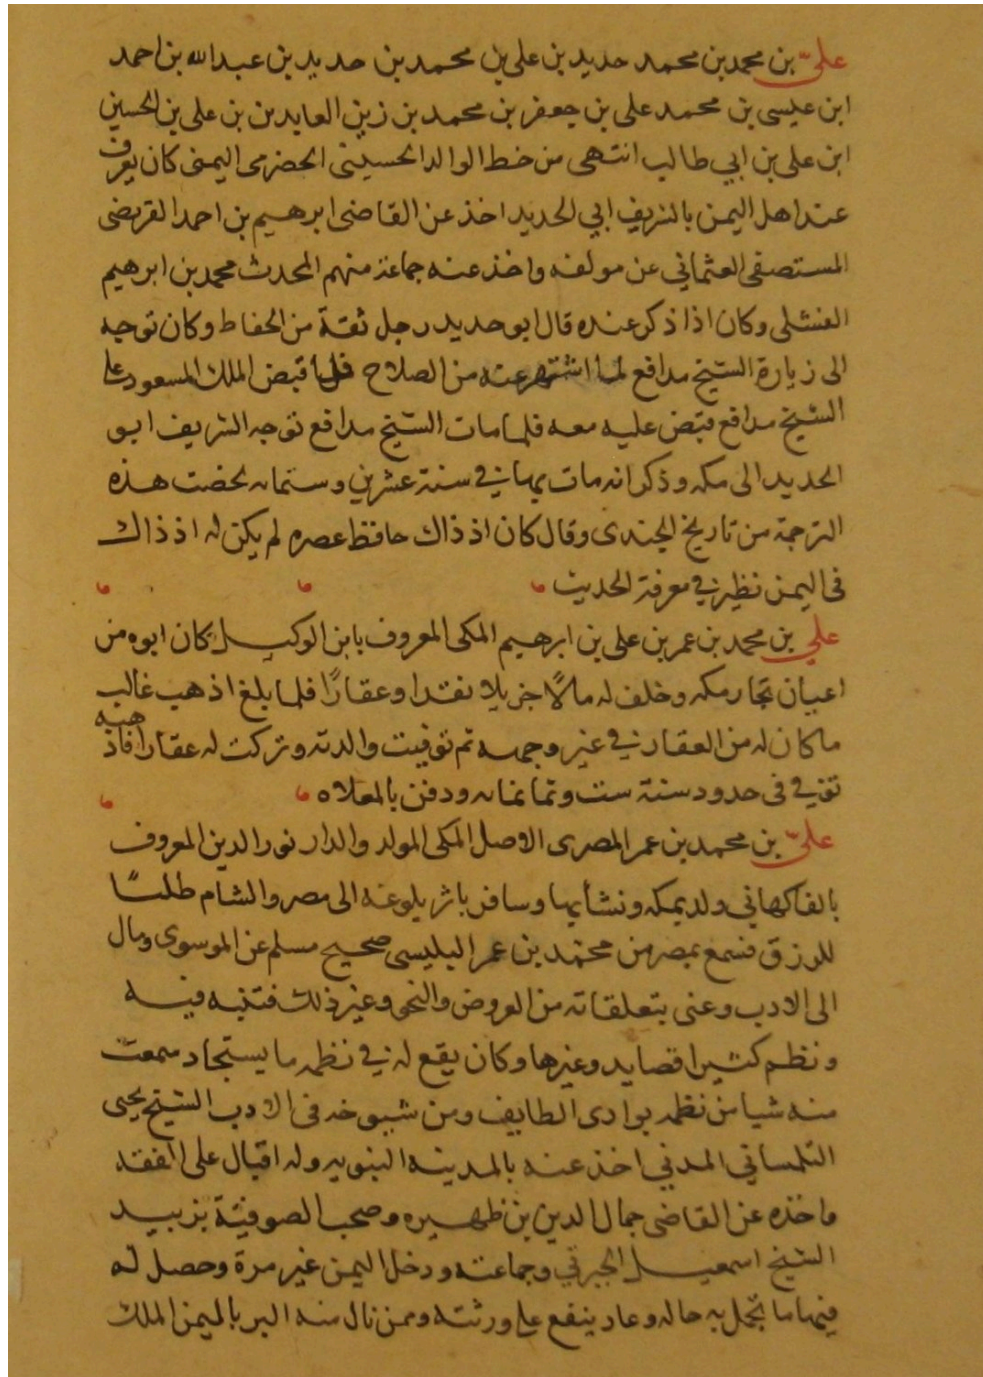 علي بن محمد بن محمد حديد بن علي بن محمد بن حديد بن عبدالله بن احمد
ابن عيسى بن محمد علي بن جعفر بن محمد بن زين العابدين بن علي بن الحسين
ابن علي بن ابي طالب انتهى من خط الوالد الحسيني الحضرمي اليمنى كان يعرف
عند اهل اليمن بالشريف ابي الحديد اخذ عن القاضى ابرهيم بن احمد القريضى
المستصفى العثماني عن مولفه واخذ عنه جماعة منهم المحدث محمد بن ابرهيم
الفشلى وكان اذا ذكر عنده قال ابو حديد رجل ثقة من الحفاظ وكان توجه
الى زيارة الشيخ مدافع لما اشتهر عنه من الصلاح فلما قبض الملك المسعود على
الشيخ مدافع قبض عليه معه فلما مات الشيخ مدافع توجه الشريف ابو
الحديد الى مكه وذكر انه مات بها في سنة عشرين وستمايه لخصت هذه
الترجمة من تاريخ الجندى وقال كان اذ ذاك حافظ عصره لم يكن له اذ ذاك
فى اليمن نظير في معرفة الحديث
علي بن محمد بن عمر بن علي بن ابرهيم المكى المعروف بابن الوكيل كان ابوه من
اعيان تجار مكه وخلف له مالًا جزيلا نقدا وعقارًا فلما بلغ اذهب غالب
ما كان له من العقار في غير وجهه ثم توفيت والدته وتركت له عقارا فاذهبه
توفي فى حدود سنة ست وثمانمايه ودفن بالمعلاه
عليّ بن محمد بن عمر المصرى الاصل المكى المولد والدار نور الدين المعروف
بالفاكهاني ولد بمكه ونشا بها وسافر باثر بلوغه الى مصر والشام طلبًا
للرزق فسمع بمصر من محمد بن عمر البلبيسى صحيح مسلم عن الموسوى ومال
الى الادب وعنى بتعلقاته من العروض والنحو وغير ذلك فتنبه فيه
ونظم كثيرا قصايد وغيرها وكان يقع له في نظمه ما يستجاد سمعت
منه شيا من نظمه بوادى الطايف ومن شيوخه فى الادب الشيخ يحيى
التلمساني المدني اخذ عنه بالمدينه النبويه وله اقبال على الفقه
واخذه عن القاضى جمال الدين بن ظهيره وصحب الصوفية بزبيد
الشيخ اسمعيل الجبرتي وجماعته ودخل اليمن غير مرة وحصل له
فيها ما تجمل به حاله وعاد ينفع على ورثته وممن نال منه البر باليمن الملك